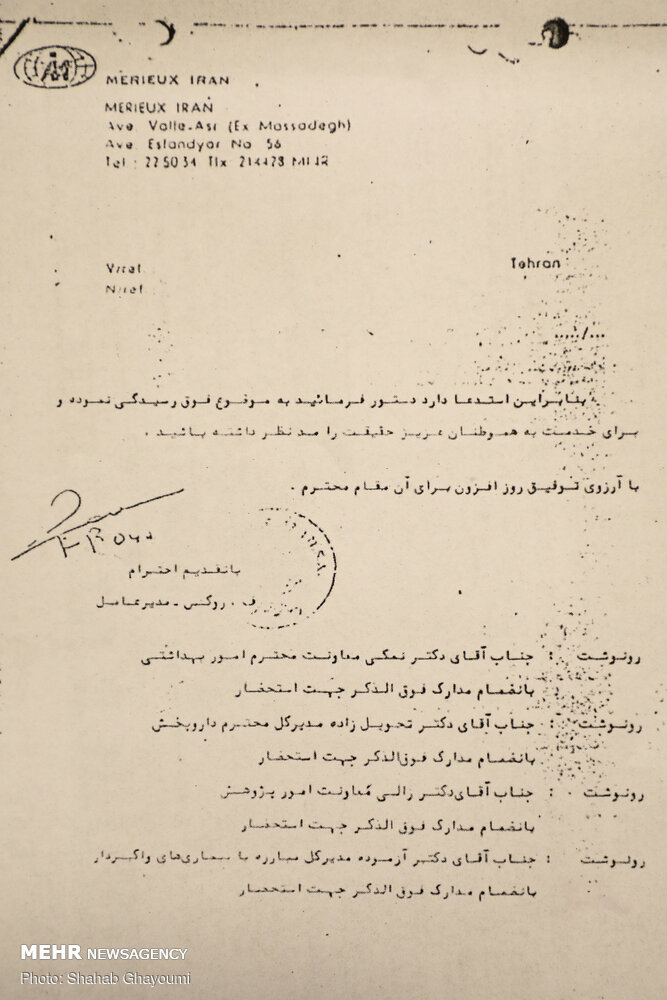 MERIEUX IRAN
MERIEUX IRAN
Ave. Valie-Asr (Ex Mossadegh)
Ave. Esfandyar No 56
Tel : 225034 Tlx 214478
V/ref.
Tehran
N/ref.
..../...
بنابراین استدعا دارد دستور فرمائید به موضوع فوق رسیدگی نموده و
برای خدمت به هموطنان عزیز حقیقت را مد نظر داشته باشید .
با آرزوی توفیق روز افزون برای آن مقام محترم .
باتقدیم احترام
ف . روکس - مدیرعامل
رونوشت : جناب آقای دکتر نمکی معاونت محترم امور بهداشتی
بانضمام مدارک فوق الذکر جهت استحضار
رونوشت : جناب آقای دکتر تحویل زاده مدیرکل محترم داروپخش
بانضمام مدارک فوق‌الذکر جهت استحضار
رونوشت : جناب آقای‌دکتر زالی معاونت امور پژوهش
بانضمام مدارک فوق الذکر جهت استحضار
رونوشت : جناب آقای دکتر آزموده مدیرکل مبارزه با بیماری‌های واگیردار
بانضمام مدارک فوق الذکر جهت استحضار
MEHR NEWSAGENCY
Photo: Shahab Ghayoumi